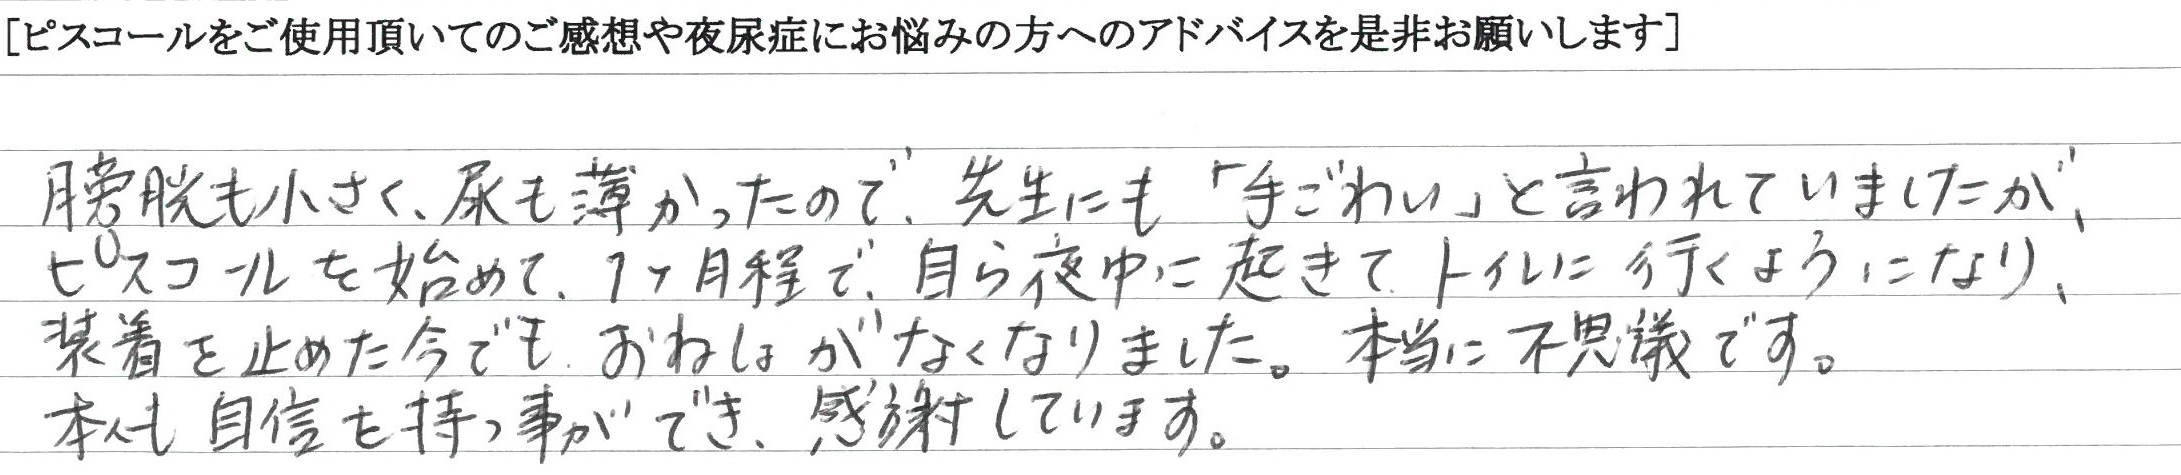 [ピスコールをご使用頂いてのご感想や夜尿症にお悩みの方へのアドバイスを是非お願いします]
膀胱も小さく、尿も薄かったので、先生にも「手ごわい」と言われていましたが、
ピスコールを始めて、1ヶ月程で、自ら夜中に起きてトイレに行くようになり、
装着を止めた今でも、おねしょがなくなりました。本当に不思議です。
本人も自信を持つ事ができ、感謝しています。